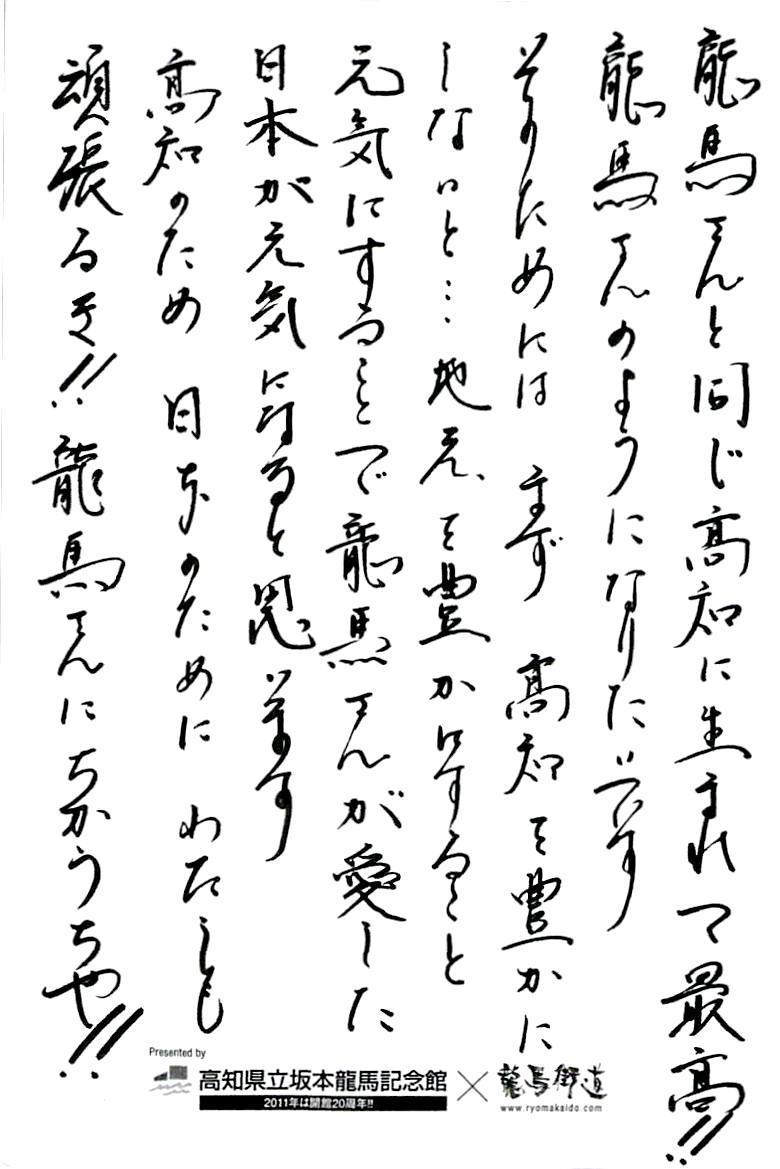 龍馬さんと同じ高知に生まれて最高!!
龍馬さんのようになりたいです
そのためには まず 高知を豊かに
しないと…地元を豊かにすること
元気にすることで龍馬さんが愛した
日本が元気になると思います
高知のため 日本のために わたしも
頑張るき!!龍馬さんにちかうちや!!
Presented by
高知県立坂本龍馬記念館×龍馬街道
2011年は開館20周年!!
www.ryomakaido.com